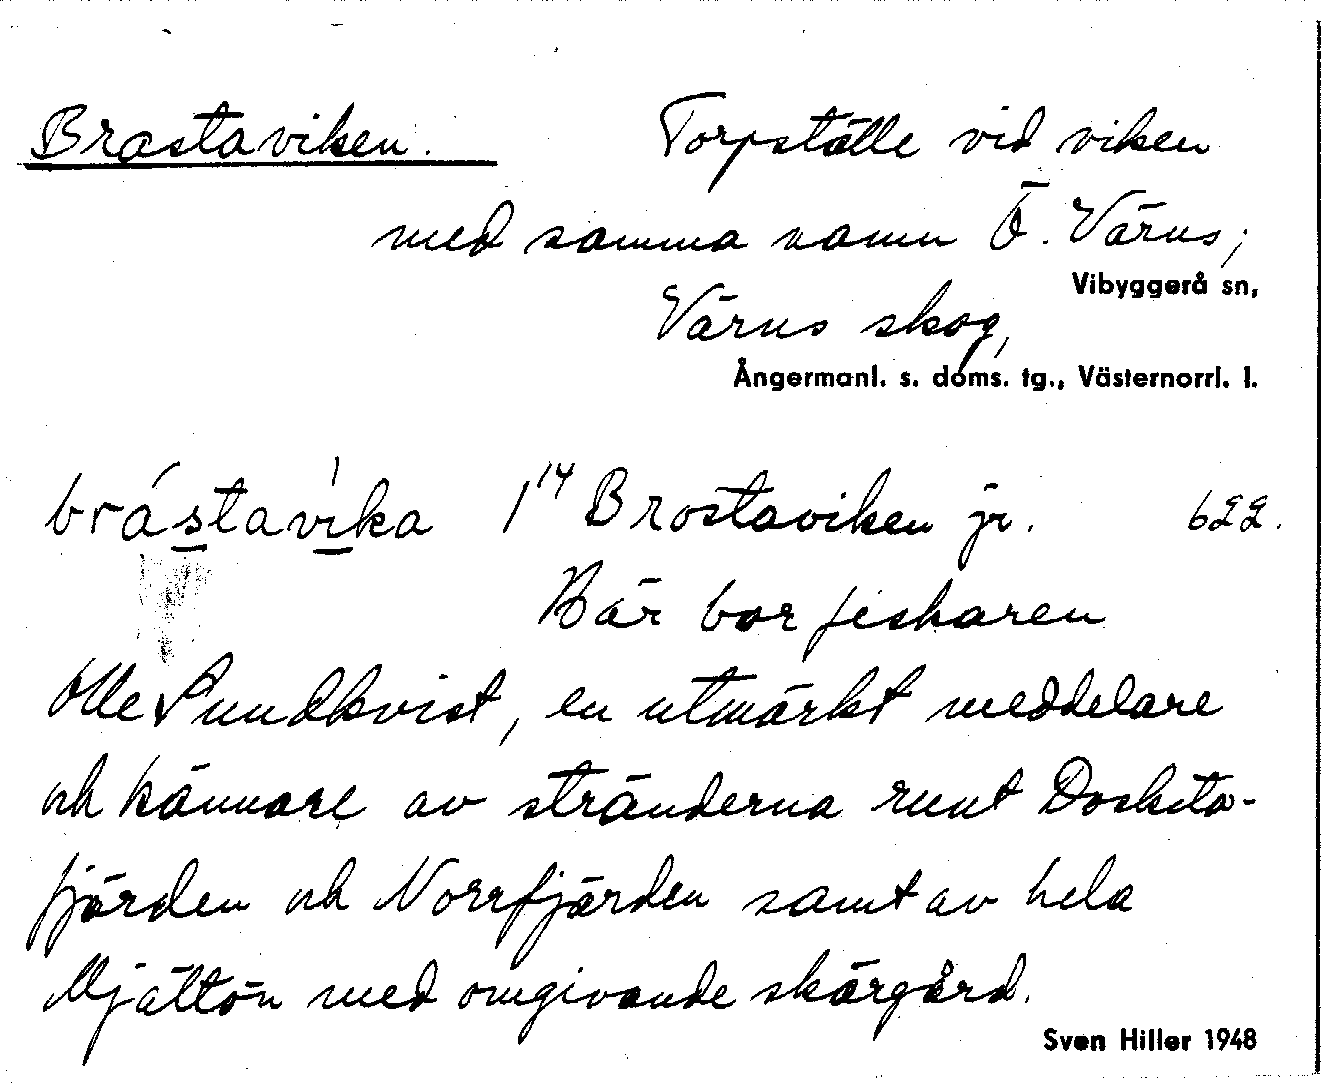 Brastaviken. Torpställe vid viken
med samma namn Ö. Värns;
Vibyggerå sn,
Värns skog,
Ångermanl. s. doms. tg., Västernorrl. l.
brástavìka 1¹⁴ Brostaviken jr. 622.
Här bor fiskaren
Olle Sundkvist, en utmärkt meddelare
och kännare av stränderna runt Docksta-
fjärden och Norrfjärden samt av hela
Mjältön med omgivande skärgård.
Sven Hiller 1948